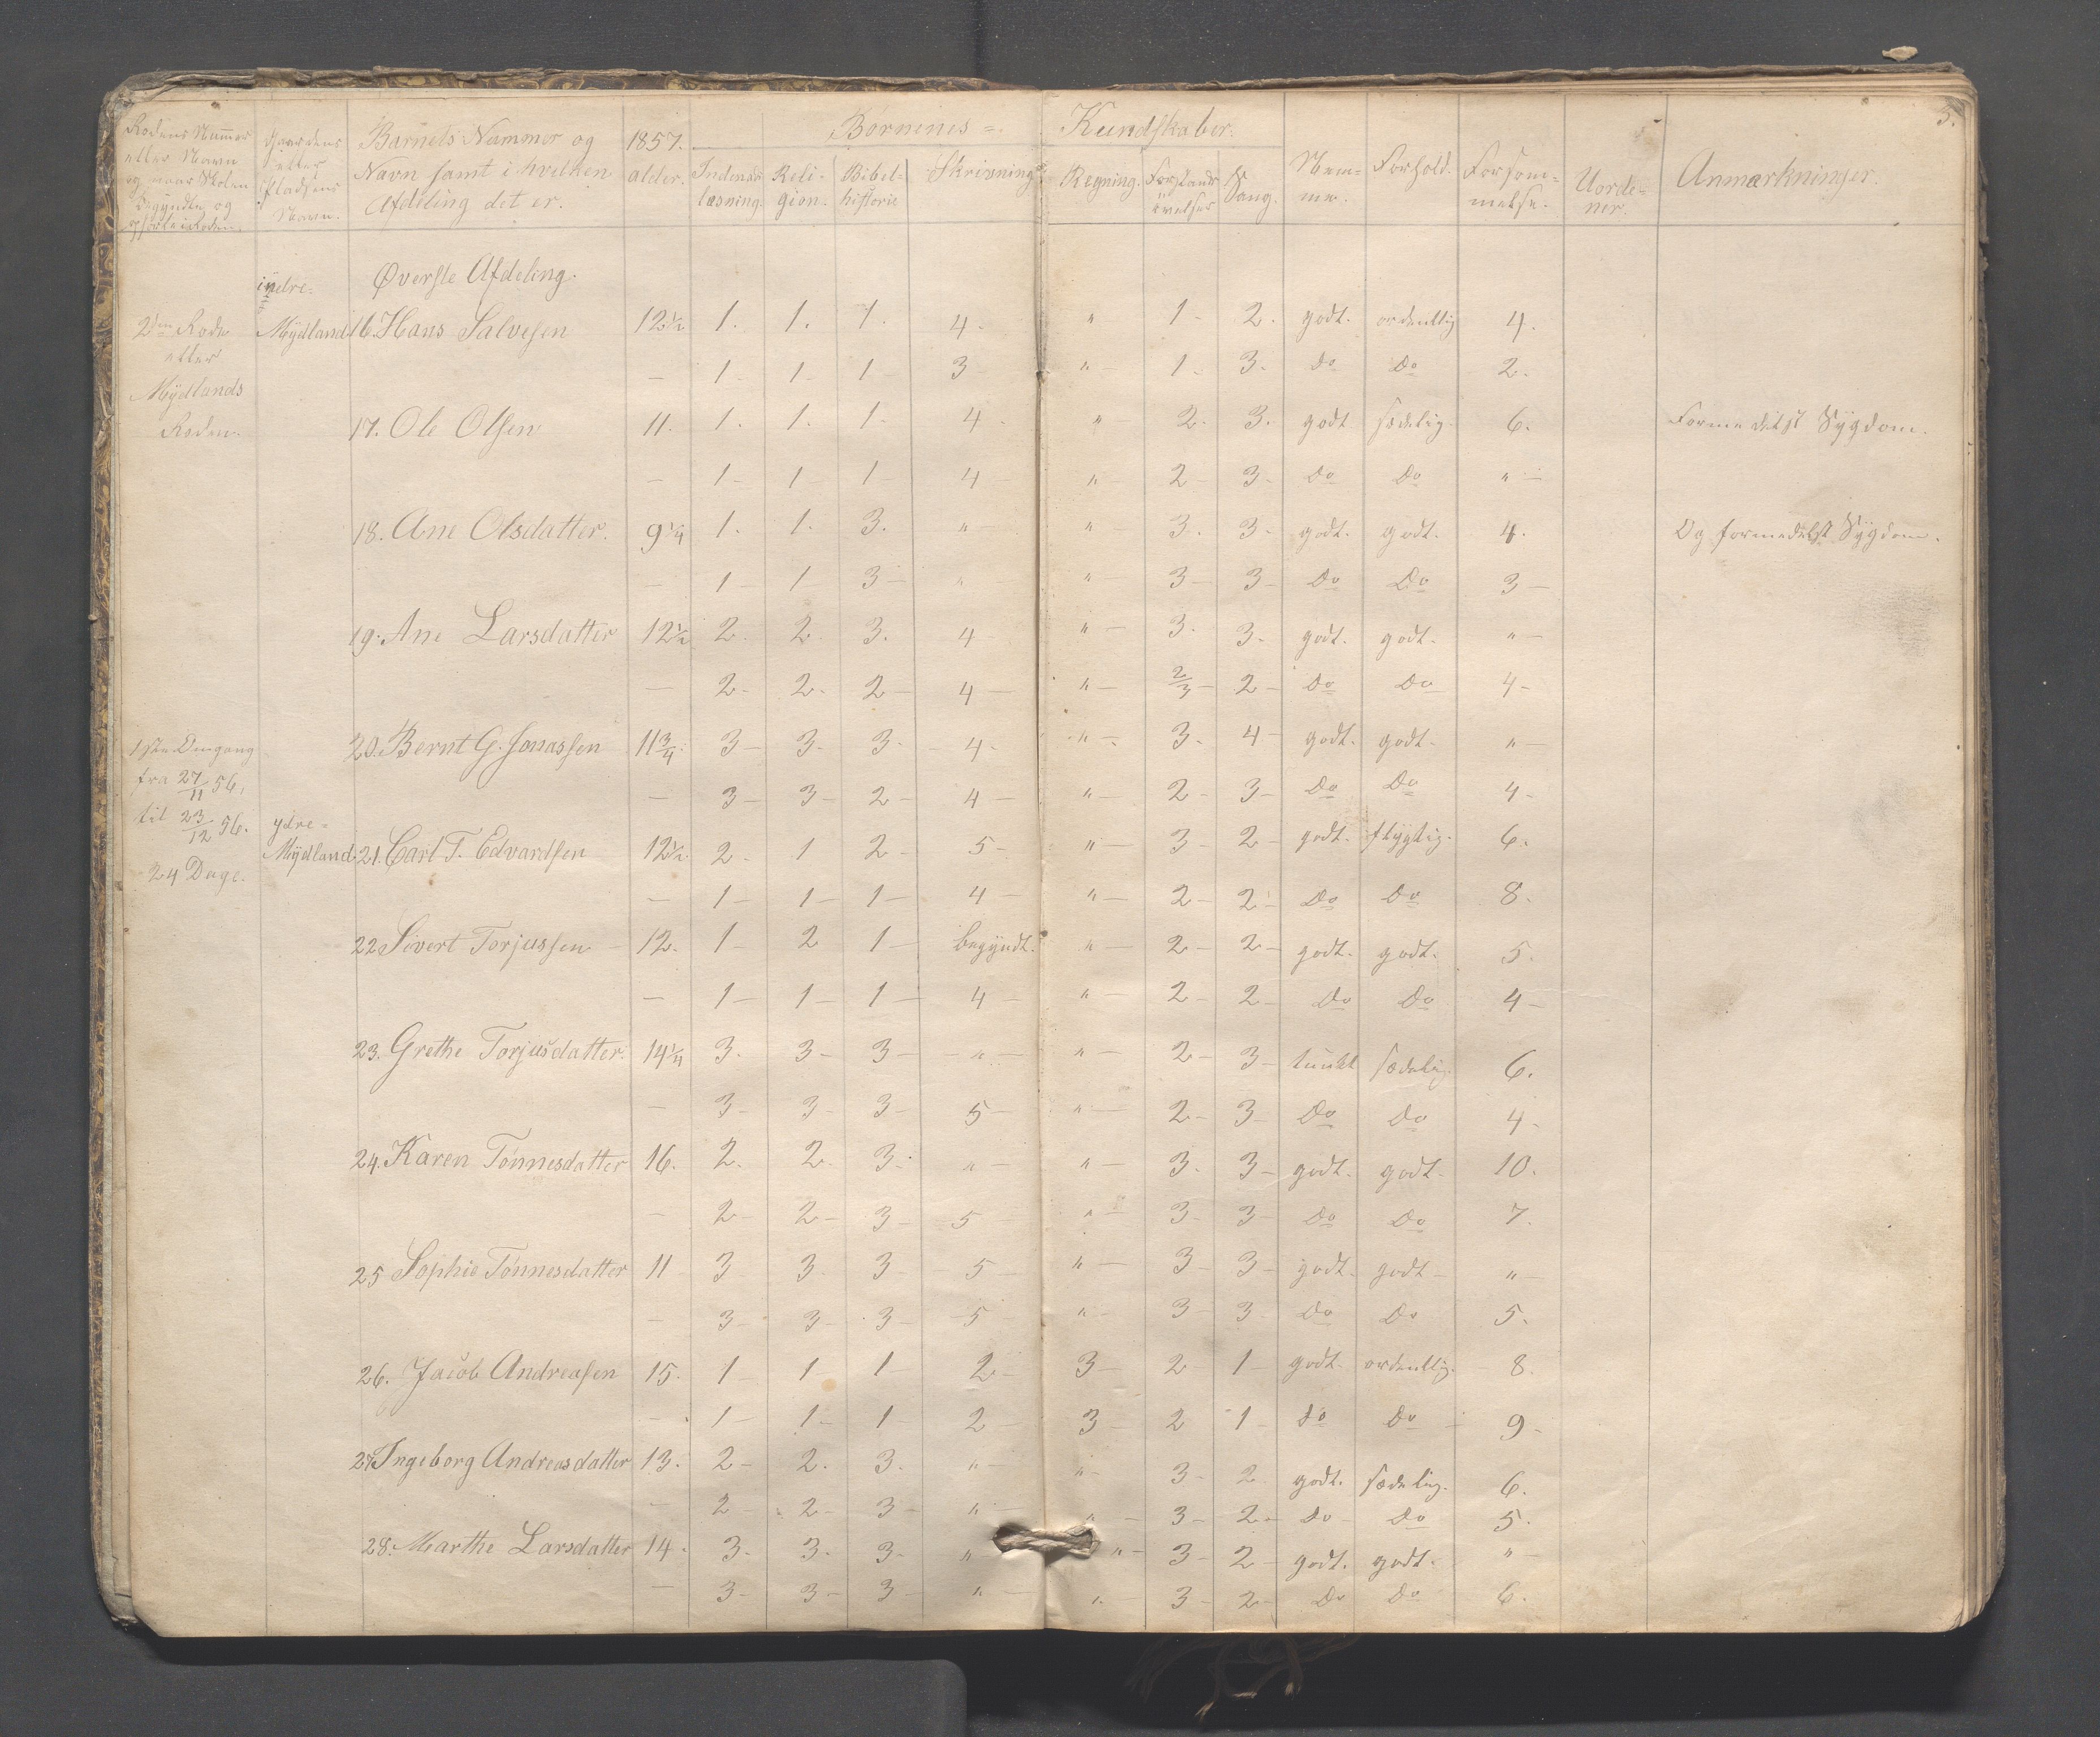 3.
Rodens Nummer eller Navn og naar Skolen begyndte og i Roden.
Gaardens eller Pladsens Navn.
Barnets Nummer og Navn samt i hvilken Afdeling det er.
1857. alder.
Børnenes Kundskaber.
Indenad-læsning. Reli-gion. Bibel-historie Skrivning Regning. Forstands øvelser Sang.
Nem-me. Forhold. Forsøm-melse. Uorde-ner. Anmærkninger.
Øverste Afdeling.
indre-
2den Rode Mÿdland 16. Hans Salvesen 12½ 1. 1. 1. 4. " 1. 2. godt. ordentlig 4.
eller — 1 1 1 3 " 1 3. do do 2.
Mÿdlands
Roden. 17. Ole Olsen 11. 1. 1. 1. 4. " 2. 3. godt sædelig. 6. Formedelst Sÿgdom.
— 1 1 1 4 " 2 3 do do "
18. Ane Olsdatter. 9¼ 1. 1. 3. " " 3. 3 godt. godt. 4. Og formedelst Sÿgdom.
— 1 1 3 " " 3 3 do do 3
19. Ane Larsdatter 12½ 2. 2 3. 4 " 3. 3. godt. godt. "
— 2 2 2 4 " 2/3 2 do do 4
1ste Omgang 20. Bernt G. Jonassen 11¾ 3 3. 3. 4 " 3. 4 godt. godt. "
fra 27/11 56, — 3 3 2 4 " 2 3 do do 4
til 23/12 56. ydre-
24 Dage. Mÿdland 21. Carl T. Edvardsen 12½ 2 1 2 5 " 3 2 godt. flÿgtig. 6.
— 1 1 1 4 " 2 2 do do 8.
22 Sivert Torjussen 12. 1 2 1 begÿndt. " 2 2 godt. godt. 5.
— 1 1 1 4 " 2 2 do do 4
23. Grethe Torjusdatter. 14¼ 3. 3 3 " " 2 3 tungt sædelig. 6.
— 3 3 3 5 " 2 3 do do 4
24. Karen Tønnesdatter 16. 2. 2. 3. " " 3. 3 godt. godt. 10.
— 2 2 3 5 " 3 3 do do 7.
25 Sophie Tønnesdatter 11 3 3. 3 5 " 3 3 godt. godt "
— 3 3 3 5 " 3 3 do do 5.
26. Jacob Andreasen 15. 1 1 1 2 3 2 1 godt. ordentlig. 8.
— 1 1 1 2 3 2 1 do do 9
27 Ingeborg Andreasdatter 13. 2 2. 3. " " 3 2 godt. sædelig. 6.
— 2 2 3 " " 3 2 do do 5.
28. Marthe Larsdatter 14. 3. 3. 3. " " 3 2 godt. godt. "
— 3 3 3 " " 3 2 do do 6.